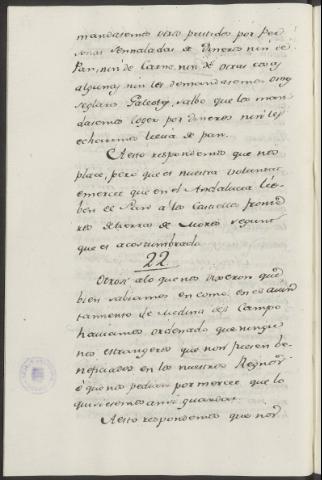 mandasemos otros pechos por Per
sonas Sennaladas de Dineros nin de
Pan, nin de Carne, nin de otras cosas
algunas, nin les demandasemos otros
salbo que los man
dasemos coger por dineros nin les
echaremos lleva de pan.
A esto respondemos que nos
place, pero que es nuestra voluntat
emerce que en el Andalucia lie-
ben el Pan a los Castiellos fronte
ros de tierras de Moros segunt
que es acostumbrado
22
Otrosi alo que nos dixeron que
bien sabiamos en como en el aiun
tamiento de Medina del Campo
haviamos ordenado que ningu
nos estrangeros que non fuesen be-
neficiados en los nuestros Regnos
é que nos pedian por merced que lo
quisiesemos ansi guardar.
A esto respondemos que nos